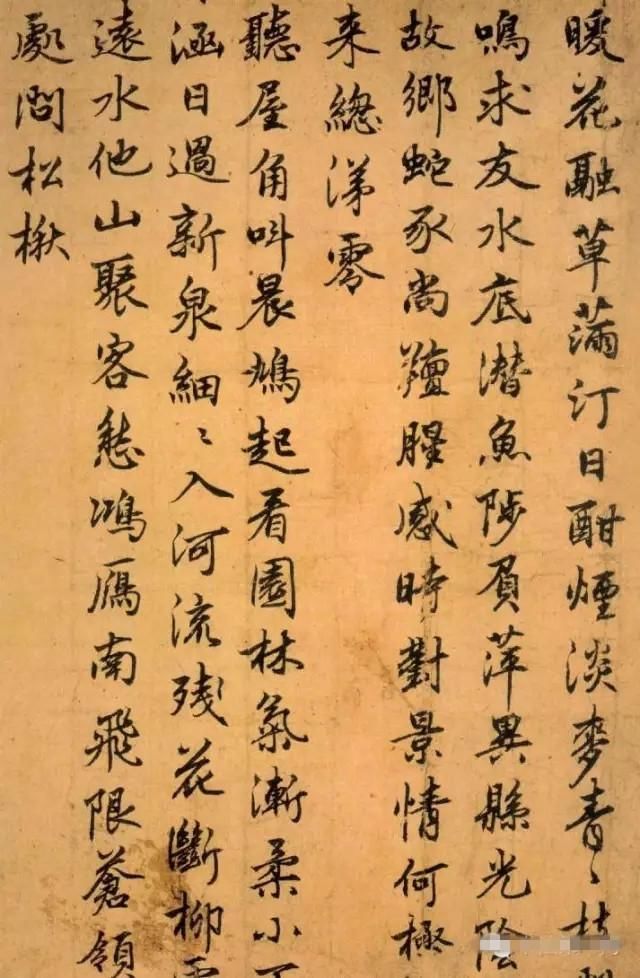 暖花融草滿汀日酣煙淡麥青〻枝
鳴求友水底潜魚陟負萍異縣光陰
故鄉蛇豕尚羶腥感時對景情何極
来總涕零
聽屋角叫晨鳩起看園林氣漸柔小
涵日過新泉細〻入河流残花斷柳
遠水他山聚客愁鴻雁南飛限蒼領
處問松楸